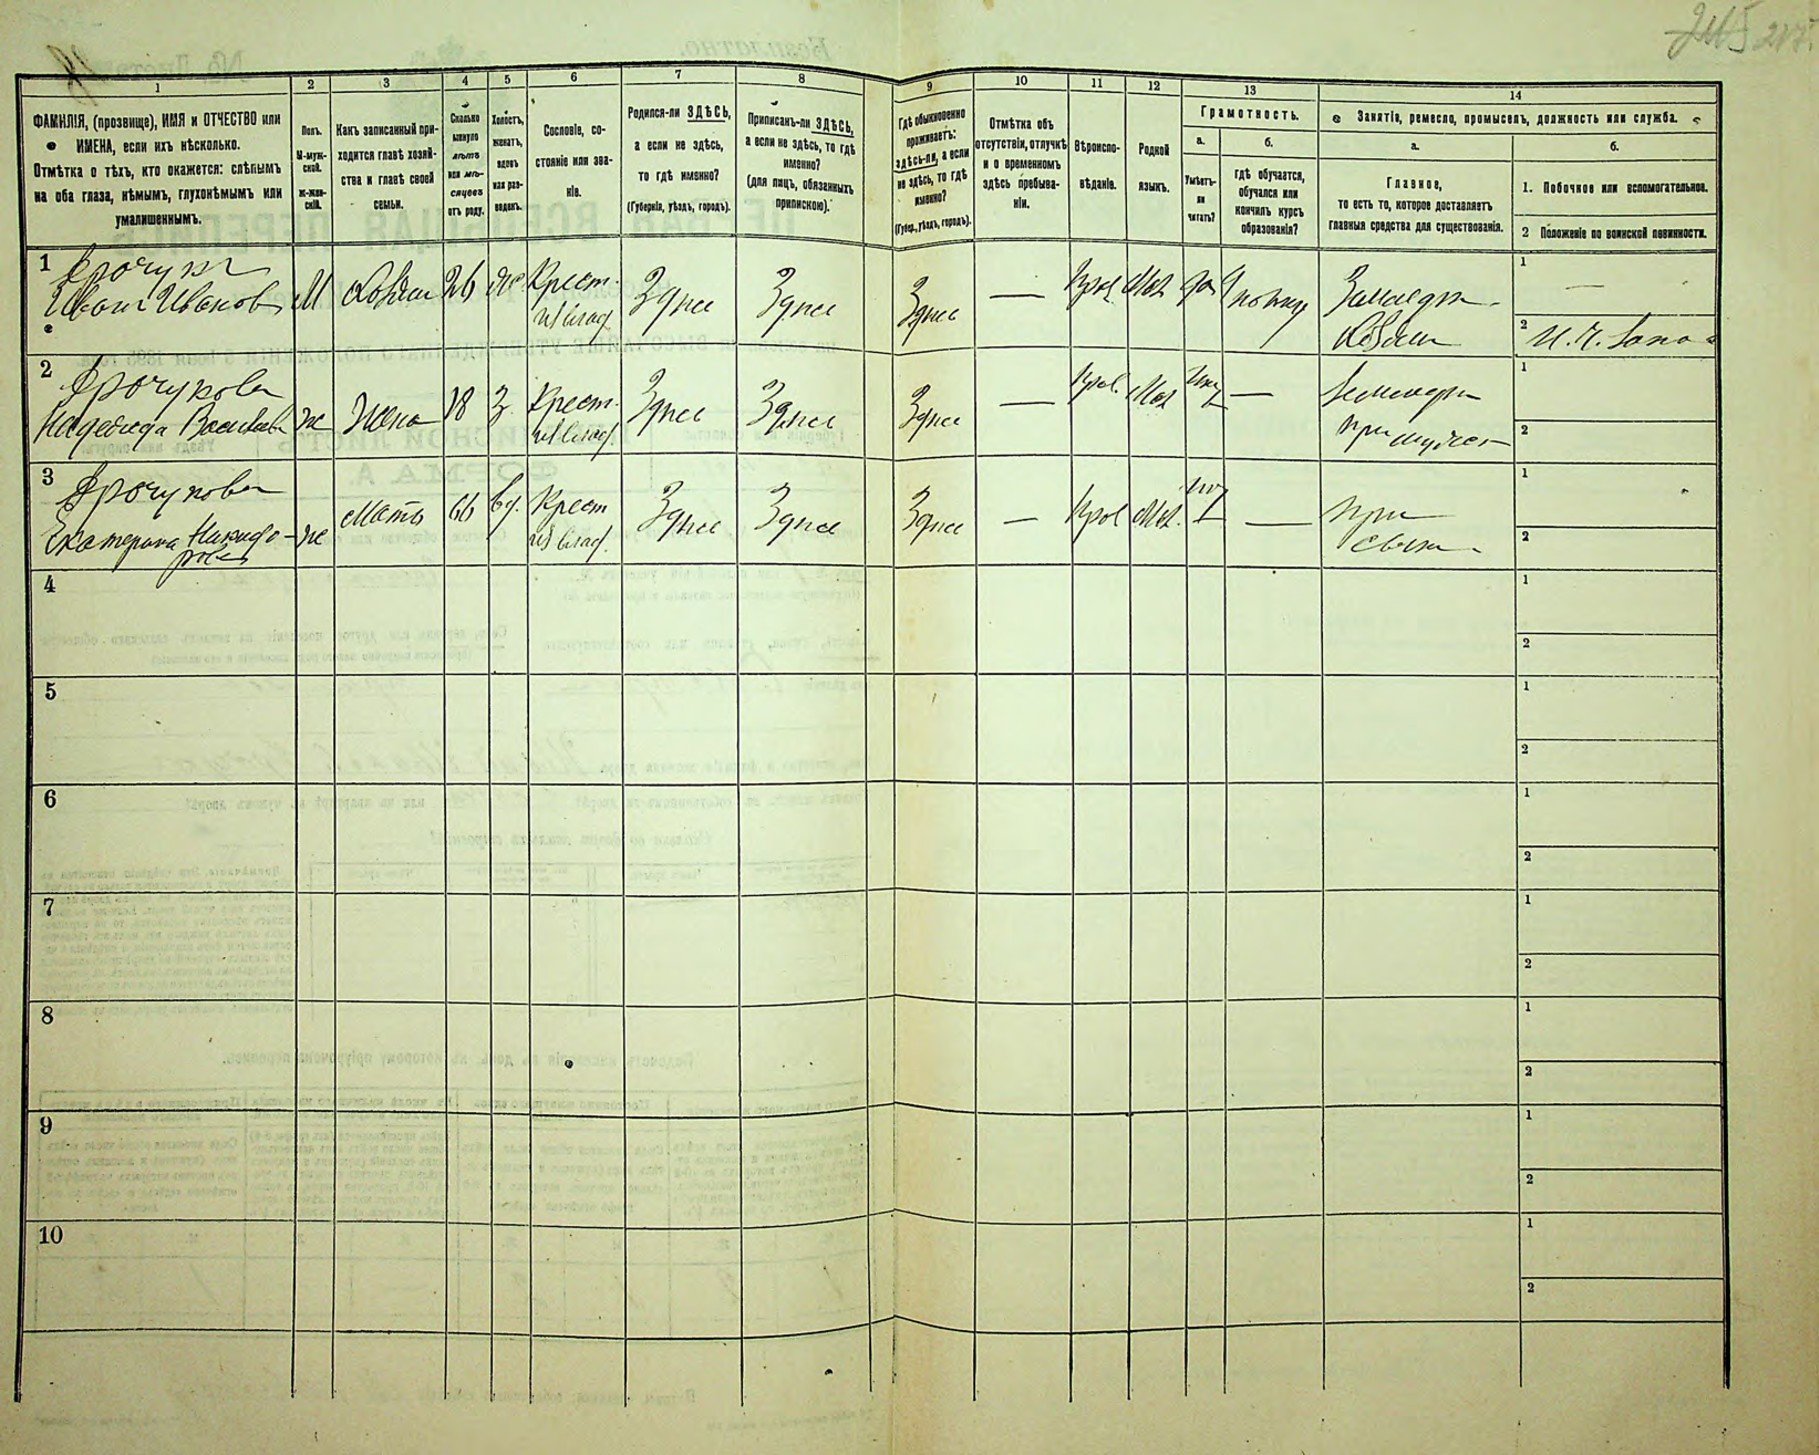 245 217
1
2
3
4
5
6
7
8
9
10
11
12
13
14
ФАМИЛІЯ, (прозвище), ИМЯ и ОТЧЕСТВО или
ИМЕНА, если ихъ нѣсколько.
Отмѣтка о тѣхъ, кто окажется: слѣпымъ
на оба глаза, нѣмымъ, глухонѣмымъ или
умалишеннымъ.
Полъ.
М-муж-
ской.
ж-жен-
скій.
Какъ записанный при-
ходится главѣ хозяй-
ства и главѣ своей
семьи.
Сколько
минуло
лѣтъ
или мѣ-
сяцевъ
отъ роду.
Холостъ,
женатъ,
вдовъ
или раз-
веденъ.
Сословіе, со-
стояніе или зва-
ніе.
Родился-ли ЗДѢСЬ,
а если не здѣсь,
то гдѣ именно?
(Губернія, уѣздъ, городъ).
Приписанъ-ли ЗДѢСЬ,
а если не здѣсь, то гдѣ
именно?
(для лицъ, обязанныхъ
припискою).
Гдѣ обыкновенно
проживаетъ:
здѣсь-ли, а если
не здѣсь, то гдѣ
именно?
(Губер., уѣздъ, городъ).
Отмѣтка объ
отсутствіи, отлучкѣ
и о временномъ
здѣсь пребыва-
ніи.
Вѣроиспо-
вѣданіе.
Родной
языкъ.
Грамотность.
а.
Умѣетъ-
ли
читать?
б.
гдѣ обучается,
обучался или
кончилъ курсъ
образованія?
Занятія, ремесло, промыселъ, должность или служба.
а.
Главное,
то есть то, которое доставляетъ
главныя средства для существованія.
б.
1. Побочное или вспомогательное.
2 Положеніе по воинской повинности.
1
Иванъ Ивановъ
М
Хозяин
26
же
Крест.
из влад.
Здѣсь
Здѣсь
Здѣсь
—
Прав
Мал
да
Земледѣл.
Хозяин
1 —
2
2
Надежда Васильева
ж
Жена
18
З.
Крест.
из влад.
Здѣсь
Здѣсь
Здѣсь
—
Прав.
Мал
нѣт
—
Земледѣл
при мужѣ
1
2
3
Екатерина Никифо-
рова
ж
Мать
66
вд.
Крест
из влад.
Здѣсь
Здѣсь
Здѣсь
—
Прав
Мал.
нѣт
—
при
сынѣ
1
2
4
1
2
5
1
2
6
1
2
7
1
2
8
1
2
9
1
2
10
1
2